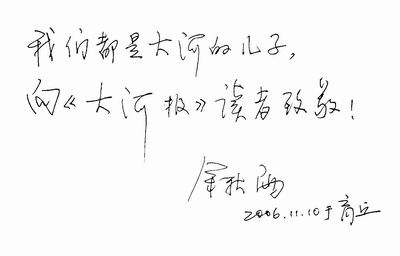 我们都是大河的儿子，
向《大河报》读者致敬！
余秋雨
2006.11.10于商丘